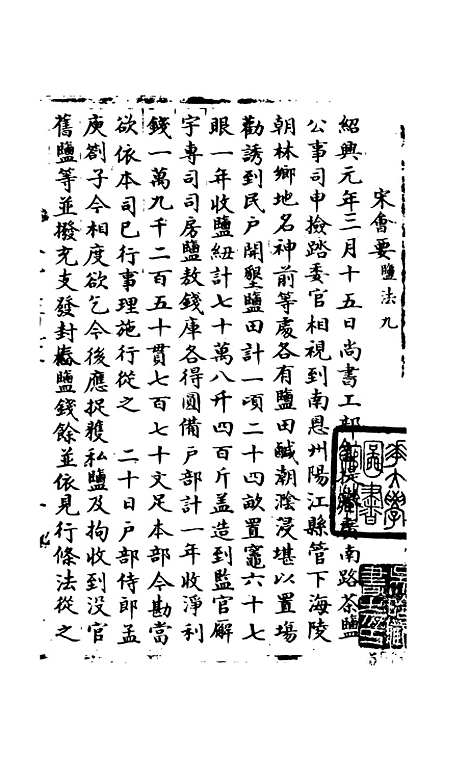 宋會要鹽法九
紹興元年三月十五日尚書工部 提舉廣南路茶鹽
公事司申撿踏委官相視到南恩州陽江縣管下海陵
朝林鄉地名神前等處各有鹽田鹹潮滲浸堪以置場
勸誘到民戶開墾鹽田計一項二十四畝置竈六十七
眼一年收鹽紐計七十萬八千四百斤盖造到監官廨
宇專司司房鹽敖錢庫各得圓備戶部計一年收淨利
錢一萬九千二百五十貫七百七十文足本部今勘當
欲依本司已行事理施行從之 二十日戶部侍郎孟
庾劄子今相度欲乞今後應捉獲私鹽及拘收到沒官
舊鹽等並撥充支發封樁鹽錢餘並依見行條法從之